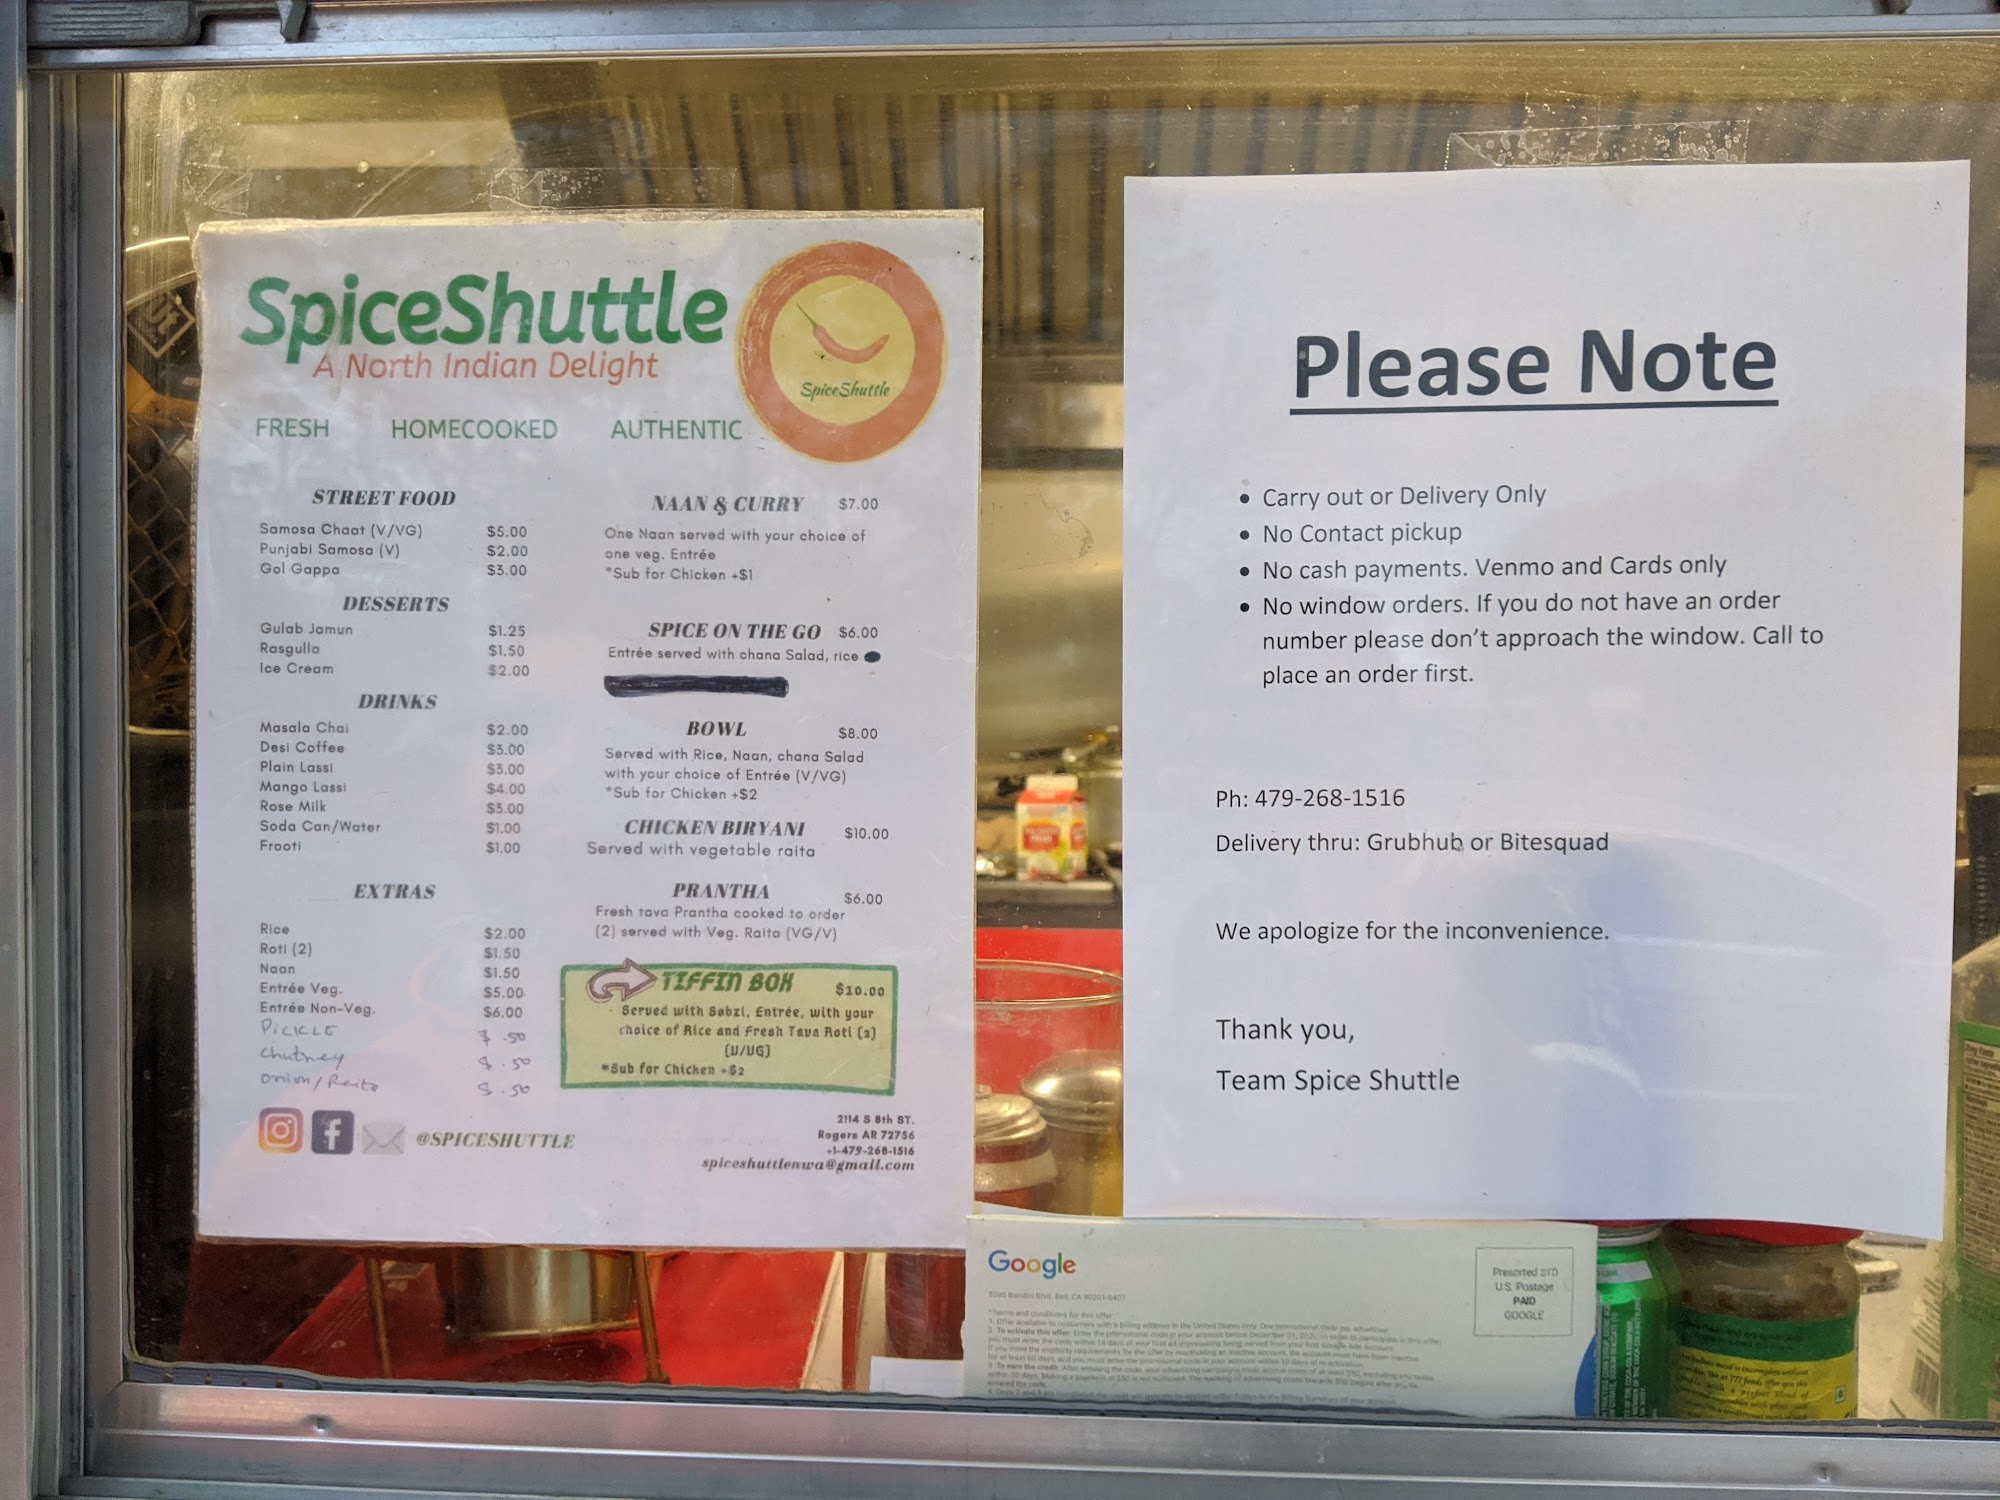 SpiceShuttle
A North Indian Delight
SpiceShuttle
FRESH HOMECOOKED AUTHENTIC
STREET FOOD
Samosa Chaat (V/VG) $5.00
Punjabi Samosa (V) $2.00
Gol Gappa $3.00
DESSERTS
Gulab Jamun $1.25
Rasgulla $1.50
Ice Cream $2.00
DRINKS
Masala Chai $2.00
Desi Coffee $3.00
Plain Lassi $3.00
Mango Lassi $4.00
Rose Milk $3.00
Soda Can/Water $1.00
Frooti $1.00
EXTRAS
Rice $2.00
Roti (2) $1.50
Naan $1.50
Entrée Veg. $5.00
Entrée Non-Veg. $6.00
PICKLE $ .50
Chutney $ .50
onion/Raita $ .50
NAAN & CURRY $7.00
One Naan served with your choice of
one veg. Entrée
*Sub for Chicken +$1
SPICE ON THE GO $6.00
Entrée served with chana Salad, rice
BOWL $8.00
Served with Rice, Naan, chana Salad
with your choice of Entrée (V/VG)
*Sub for Chicken +$2
CHICKEN BIRYANI $10.00
Served with vegetable raita
PRANTHA $6.00
Fresh tava Prantha cooked to order
(2) served with Veg. Raita (VG/V)
TIFFIN BOX $10.00
Served with Sabzi, Entrée, with your
choice of Rice and Fresh Tava Roti (2)
(V/VG)
*Sub for Chicken +$2
@SPICESHUTTLE
2114 S 8th ST.
Rogers AR 72756
+1-479-268-1516
spiceshuttlenwa@gmail.com
Please Note
• Carry out or Delivery Only
• No Contact pickup
• No cash payments. Venmo and Cards only
• No window orders. If you do not have an order
number please don't approach the window. Call to
place an order first.
Ph: 479-268-1516
Delivery thru: Grubhub or Bitesquad
We apologize for the inconvenience.
Thank you,
Team Spice Shuttle
Google
Presorted STD
U.S. Postage
PAID
GOOGLE
*Terms and conditions for this offer